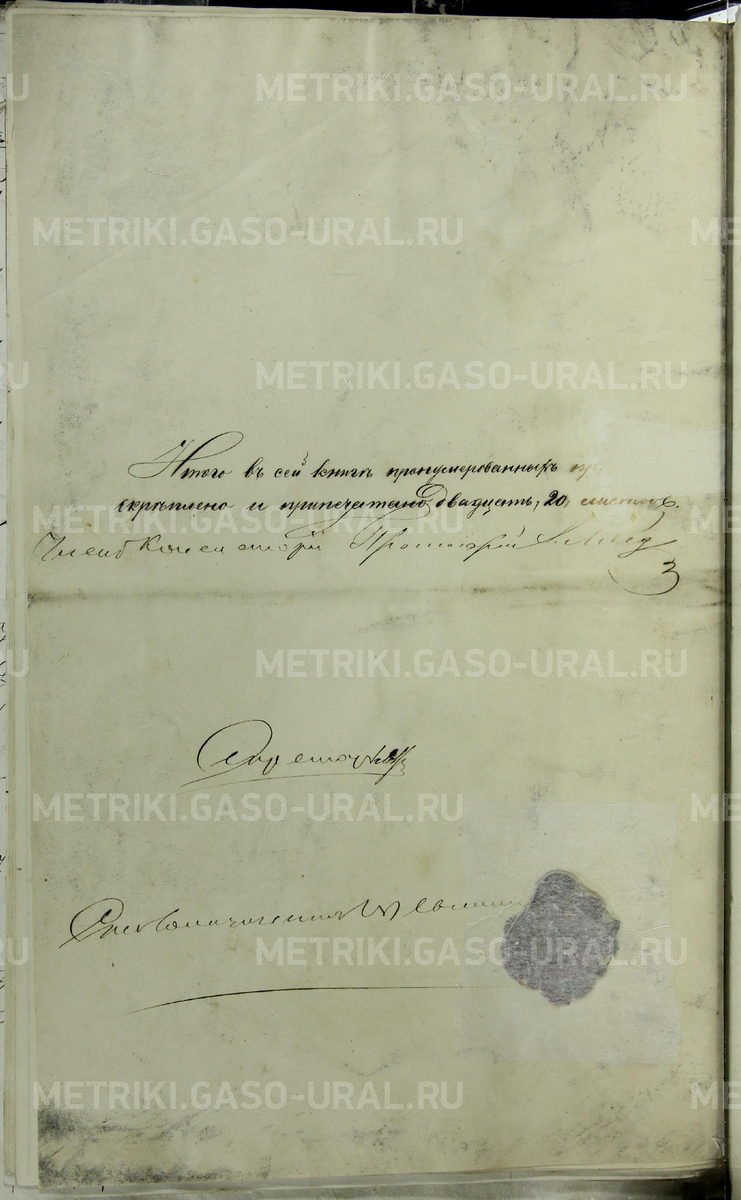 METRIKI.GASO-URAL.RU
METRIKI.GASO-URAL.RU
METRIKI.GASO-URAL.RU
Итого въ сей книгѣ пронумерованныхъ
скрѣплено и припечатано двадцать, 20, листовъ.
METRIKI.GASO-URAL.RU
Членъ Консисторіи Протоіерей
METRIKI.GASO-URAL.RU
Секретарь
METRIKI.GASO-URAL.RU
METRIKI.GASO-URAL.RU
METRIKI.GASO-URAL.RU